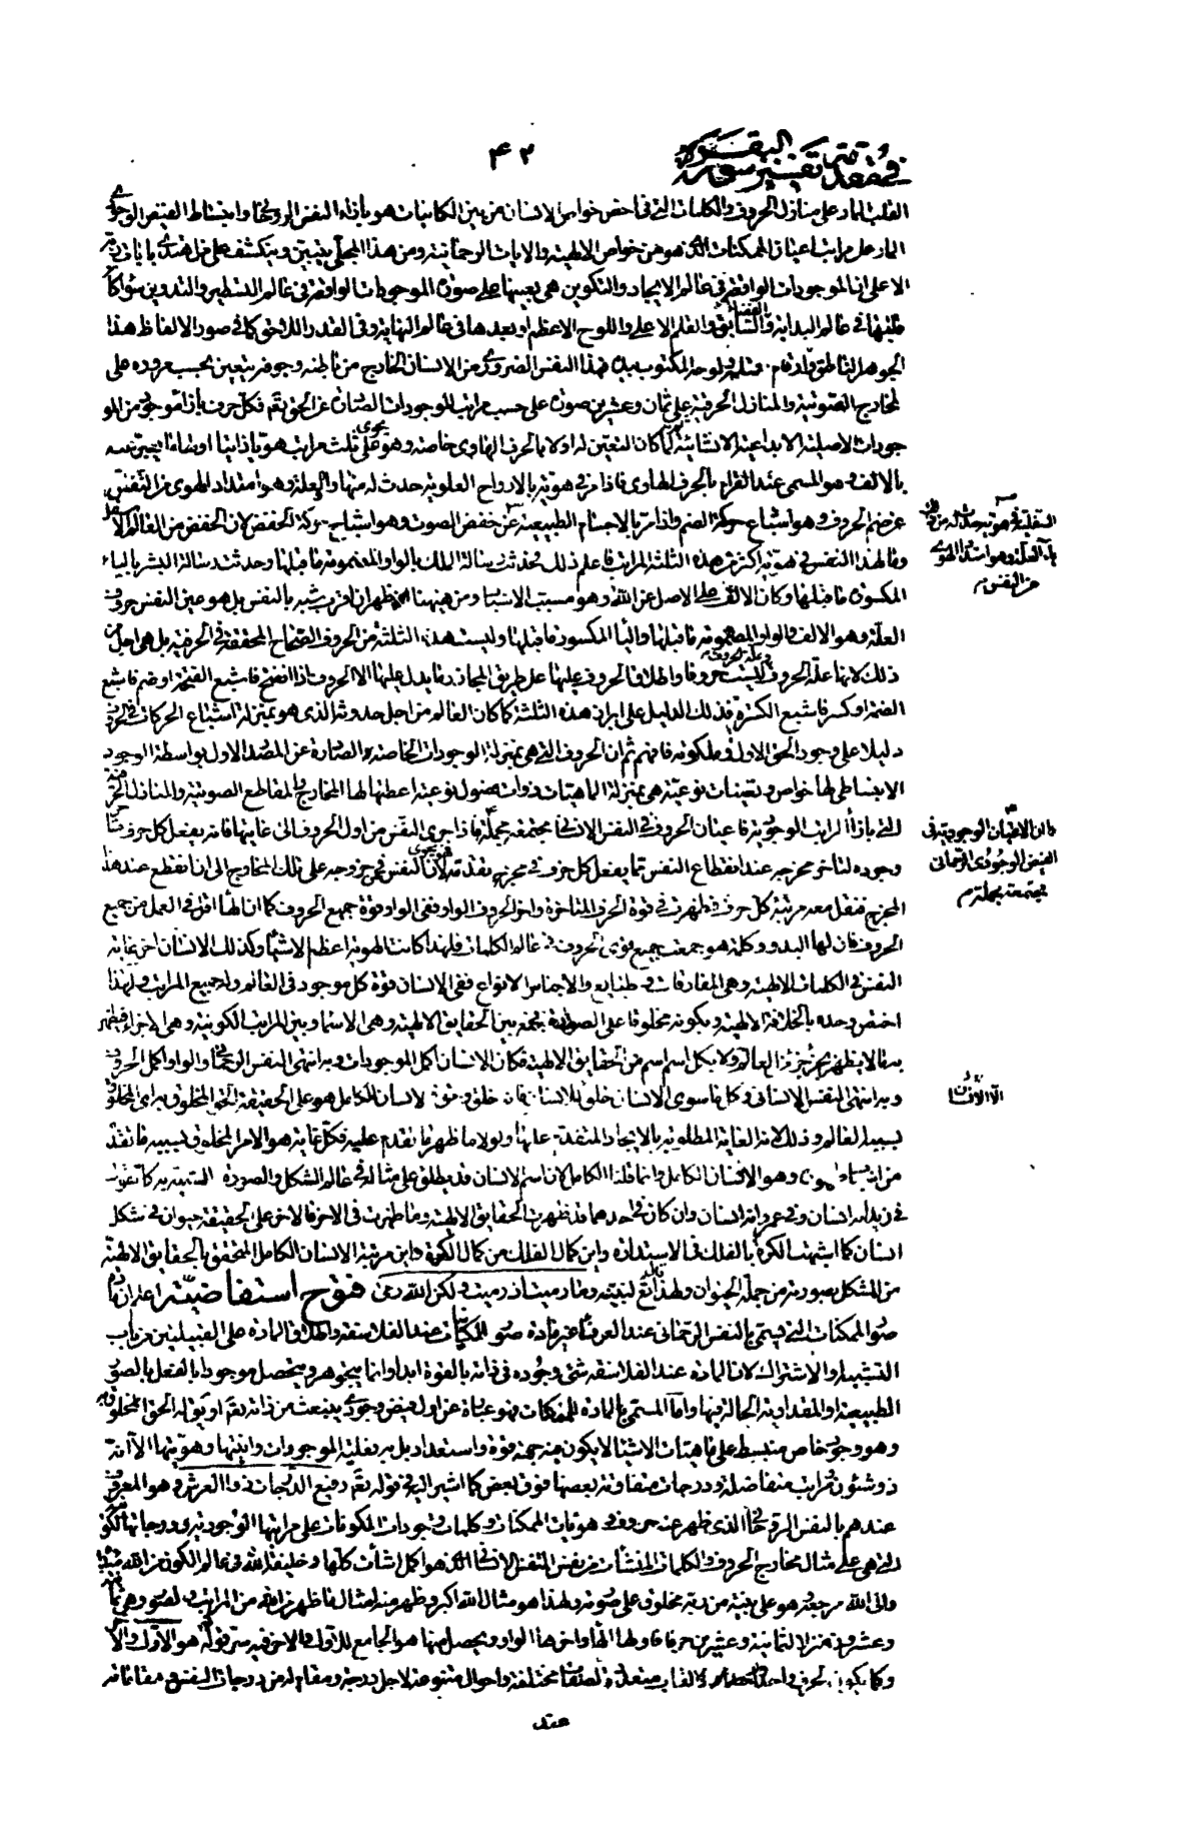 في مقدمة تفسير سورة البقرة
۴۲
القلب المار على منازل الحروف والكلمات التي في اخص خواص الانسان من بين الكاينات هو بازاء النفس الروحاني وانبساط الفيض الوجودي
المار على مراتب اعيان الممكنات الذي هو من خواص الالهية والايات الرحمانية ومن هذا المجلى يتبين وينكشف على من اهتدى بايات ربه
الاعلى ان الموجودات الواقعة في عالم الايجاد والتكوين هي بعينها على صورة الموجودات الواقعة في عالم التسطير والتدوين سواء كان
طبقها في عالم البداية والقضاء السابق والقلم الاعلى واللوح الاعظم او بعدها في عالم النهاية وفي القدر اللاحق كما في صور الالفاظ هذا
الجوهر الناطق وارقام قلمه ولوحه المكتوب بيده فهذا النفس الضروري من الانسان الخارج من باطنه وجوفه يتعين بحسب مروره على
المخارج الصوتية والمنازل الحرفية على ثمان وعشرين صورة على حسب مراتب الموجودات الصادرة عن الحق تقم فكل حرف بازاء موجود من المو
جودات الاصلية الابداعية الانشائية كما كان التعين له اولا بالحرف الهاوي خاصة وهو يحوي على ثلث مراتب هوياذاتيا
بالالف وهو المسمى عند القراء بالحرف الهاوي فاذا مر في هويه بالارواح العلوية حدث له منها واو العلة وهو امتداد الهوى من النفس
عن ضم الحروف وهو اشباع حركة الضم واذا مر بالاجسام الطبيعية عن خفض الصوت وهو اشباع حركة الخفض لان الخفض من العالم الاسفل
وما لهذا النفس في هويه اكثر من هذه الثلثة المراتب فاعلم ذلك فحدثت رسالة الملك بالواو المضمومة ما قبلها وحدثت رسالة البشر بالياء
المكسورة ما قبلها وكان الالف على الاصل عن الله وهو مسبب الاسباب ومن هيهنا ظهر ان اقرب شبه بالنفس بل هو عين النفس حروف
العلة وهو الالف والواو المضمومة ما قبلها والياء المكسورة ما قبلها وليست هذه الثلثة من الحروف الصحاح المحققة في الحرفية بل هي اجل من
ذلك لانها علة الحروف وعلة الحروف ليست حروفا واطلاق الحروف عليها على طريق المجاز مما يدل عليها الا الحروف اذا انفتح فاشبع الفتحة او ضم فاشبع
الضمة او كسر فاشبع الكسرة فذلك الدليل على ابراز هذه الثلثة كما كان العالم من اجل حدوثه الذي هو بمنزلة اشباع الحركات في الحروف
دليلا على وجود الحق الاول في ملكوته فافهم ثم ان الحروف التي هي بمنزلة الوجودات الخاصة الصادرة عن المصدر الاول بواسطة الوجود
الانبساطي لها خواص وتعينات نوعية هي بمنزلة الماهيات ذوات فصول نوعية اعطتها لها المخارج والمقاطع الصوتية والمنازل الحرفية
التي بازاء المراتب الوجودية فاعيان الحروف في النفس الانساني مجتمعة مجملة فاذا جرى النفس من اول الحروف الى غايتها فانه يفعل كل حرف متاخر
وجوده لتاخر مخرجه عند انقطاع النفس مما يفعل كل حرف في مخرج تقدمه لان النفس في خروجه على تلك المخارج الى ان انقطع عند هذا
المخرج فنقل معه مرتبة كل حرف فظهرت في قوة الحرف المتاخر واخر الحروف الواو ففي الواو قوة جميع الحروف كما ان الهاء اقل في العمل من جميع
الحروف فان لها البدو وكلمة هو جمعت جميع قوى الحروف في عالم الكلمات فلهذا كانت الهوية اعظم الاشياء وكذلك الانسان اخر غاية
النفس في الكلمات الالهية وهي المفارقات وطبايع الاجناس والانواع ففي الانسان قوة كل موجود في العالم وله جميع المراتب ولهذا
اختص وحده بالخلافة الالهية وبكونه مخلوقا على الصورة فجمع بين الحقايق الالهية وهي الاسماء وبين المراتب الكونية وهي الاجزاء فيظهر
به ما لا يظهر بجزء جزء من العالم ولا بكل اسم اسم من الحقايق الالهية فكان الانسان اكمل الموجودات وبه انتهى النفس الرحماني والواو اكمل الحروف
وبه انتهى النفس الانساني وكل ما سوى الانسان خلق الا الانسان فانه خلق وحق لانسان الكامل هو على الحقيقة الحق المخلوق به اي المخلوق
بسببه العالم وذلك لانه الغاية المطلوبة بالايجاد المتقدمة عليها ولولاه ما ظهر ما تقدم عليه فكل غاية هو الامر المخلوق بسببه ما تقدم
من اسباب وهو الانسان الكامل وانما قلنا الكامل لان اسم الانسان قد يطلق على مثاله في عالم الشكل والصورة البشرية كما تقول
في زيد انه انسان وفي عمرو انه انسان وان كان في احدهما قد ظهرت الحقايق الالهية وما ظهرت في الاخر فالاخر على الحقيقة حيوان في شكل
انسان كما اشبهت الكرة بالفلك في الاستدارة واين كمال الفلك من كمال الكرة واين مرتبة الانسان الكامل المتحقق بالحقايق الالهية
من المشكل بصورته من جملة الحيوان ولهذا قال تع لنبيه وما رميت اذ رميت ولكن الله رمى فتوح استفاضية اعلم ان مادة
صور الممكنات التي تسمى بالنفس الرحماني عند العرفاء غير مادة صور المكونات عند الفلاسفة واطلاق المادة على القبيلين من باب
التشبيه او الاشتراك لان المادة عند الفلاسفة شيء وجوده في ذاته بالقوة ابدا وانما يتجوهر ويتحصل موجودا بالفعل بالصور
الطبيعية او المقدارية الحالة فيها واما المسمى بالمادة للممكنات فهو عبارة عن اول فيض وجودي ينبعث من ذاته تقم او يق له الحق المخلوق به
وهو وجود خاص منبسط على ماهيات الاشياء لا يكون فيه جهة قوة واستعداد بل به فعلية الموجودات وانيتها وهويتها الا انه
ذو شئون ومراتب متفاضلة ودرجات متفاوتة بعضها فوق بعض كما اشير اليه في قوله تقم رفيع الدرجات ذو العرش وهو المعروف
عندهم بالنفس الرحماني الذي ظهر عنه حروف وهويات الممكنات وكلمات وجودات المكونات على مراتبها الوجودية ودرجاتها الكونية
التي هي على مثال مخارج الحروف والكلمات المنشآت من نفس المتنفس الانساني الذي هو اكمل نشآت كلها وخليفة الله في عالم الكون من الله مبدؤه
والى الله مرجعه هو على بينة من ربه مخلوق على صورته ولهذا هو مثال الله اكبر وظهر منه امثال ما ظهر من الله من المراتب والصور وهي ثمانية
وعشرون منزلا لثمانية وعشرين حرفا اولها الهاء واخرها الواو ويحصل منها هو الجامع للاول والاخر فيه سر قوله هو الاول والاخر
وكما يكون الحرف واحد القاب متعددة لصفات مختلفة واحوال متنوعة لاجل درجة ومقام له من درجات النفس ومقاماته
السفلية في هويه حدث له من ذلك ياء العلة وهو امتداد الهوى من النفس م
فان الاعيان الوجودية في الفيض الوجودي الرحماني مجتمعة مجملة م
الا الانسان
عند